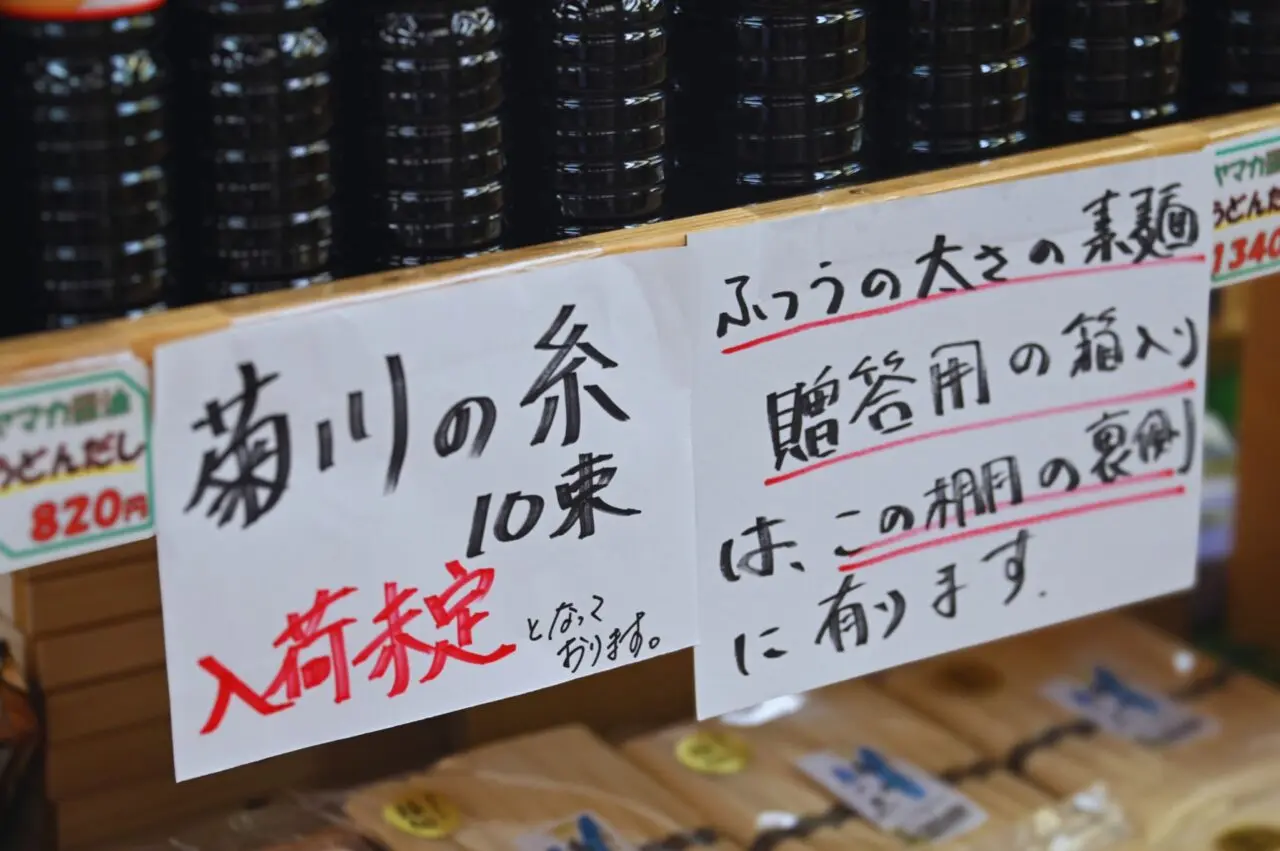 ヤマカ醤油
うどんだし
820円
菊川の糸
10束
入荷未定
となって
おります。
ふつうの太さの素麺
贈答用の箱入り
は、この棚の裏側
に有ります.
ヤマカ醤
うどんだ
1340